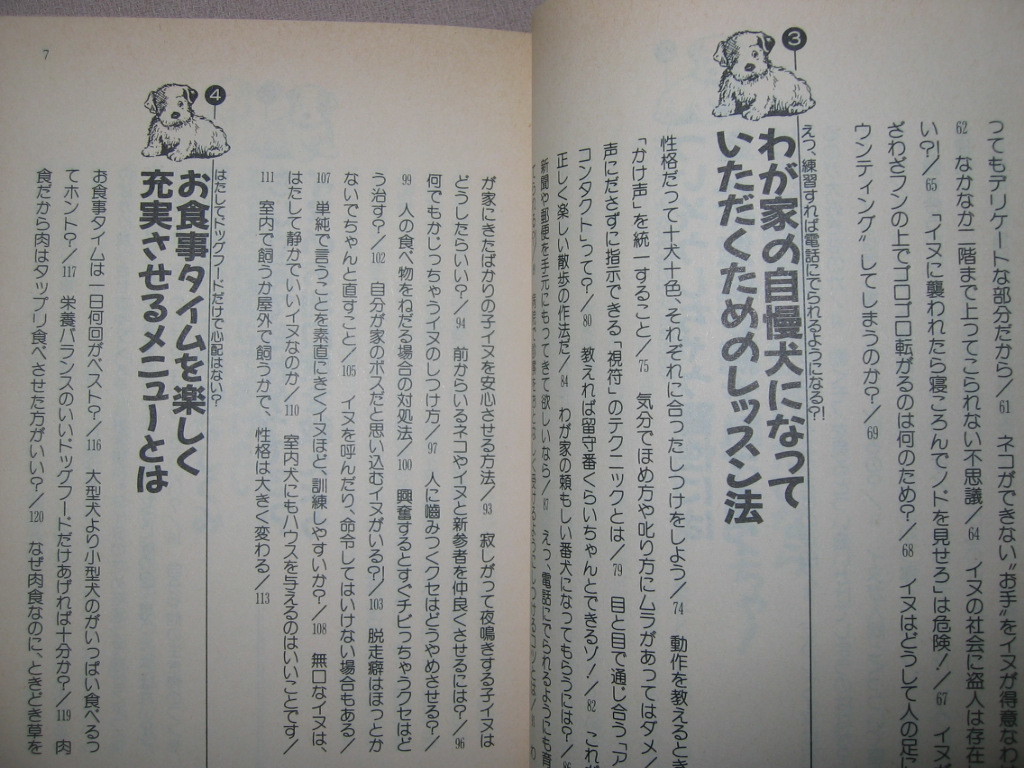 ってもデリケートな部分だから／61　ネコができない〝お手〟をイヌが得意なわ
62　なかなか二階まで上ってこられない不思議／64　イヌの社会に盗人は存在
い?!／65　「イヌに襲われたら寝ころんでノドを見せろ」は危険！／67　イヌが
ざわざフンの上でゴロゴロ転がるのは何のため？／68　イヌはどうして人の足に
ウンティング〟してしまうのか？／69
3
えっ、練習すれば電話にでられるようになる?!
わが家の自慢犬になって
いただくためのレッスン法
性格だって十犬十色、それぞれに合ったしつけをしよう／74　動作を教えるとき
「かけ声」を統一すること／75　気分でほめ方や叱り方にムラがあってはダメ／
声にださずに指示できる「視符」のテクニックとは／79　目と目で通じ合う「ア
コンタクト」って？／80　教えれば留守番くらいちゃんとできるゾ！／82　これが
正しく楽しい散歩の作法だ／84　わが家の頼もしい番犬になってもらうには？／
新聞や郵便を手元にもってきて欲しいなら／87　えっ、電話にでられるようにも育
が家にきたばかりの子イヌを安心させる方法／93　寂しがって夜鳴きする子イヌは
どうしたらいい？／94　前からいるネコやイヌと新参者を仲良くさせるには？／96
何でもかじっちゃうイヌのしつけ方／97　人に嚙みつくクセはどうやめさせる？／
99　人の食べ物をねだる場合の対処法／100　興奮するとすぐチビっちゃうクセはど
う治す？／102　自分が家のボスだと思い込むイヌがいる?!／103　脱走癖はほっとか
ないでちゃんと直すこと／105　イヌを呼んだり、命令してはいけない場合もある／
107　単純で言うことを素直にきくイヌほど、訓練しやすいか？／108　無口なイヌは、
はたして静かでいいイヌなのか／110　室内犬にもハウスを与えるのはいいことです／
111　室内で飼うか屋外で飼うかで、性格は大きく変わる／113
4
はたしてドッグフードだけで心配はない？
お食事タイムを楽しく
充実させるメニューとは
お食事タイムは一日何回がベスト？／116　大型犬より小型犬のがいっぱい食べるっ
てホント？／117　栄養バランスのいいドッグフードだけあげれば十分か？／119　肉
食だから肉はタップリ食べさせた方がいい？／120　なぜ肉食なのに、ときどき草を
7